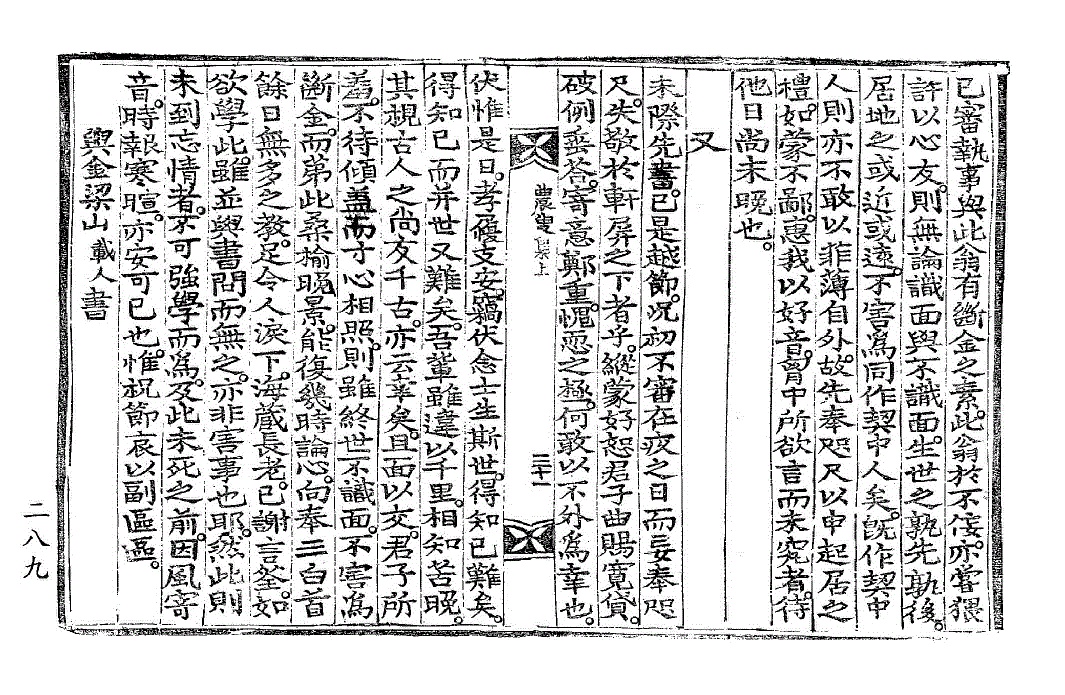 已審執事與此翁有斷金之素。此翁於不佞。亦嘗猥
許以心友。則無論識面與不識面。生世之孰先孰後。
居地之或近或遠。不害爲同作契中人矣。旣作契中
人則亦不敢以菲薄自外。故先奉咫尺以申起居之
禮。如蒙不鄙。惠我以好音。胷中所欲言而未究者。待
他日尚未晚也。
又
未際先書。已是越節。况初不審在疚之日而妄奉咫
尺。失敬於軒屏之下者乎。縱蒙好恕君子曲賜寬貸。
破例垂答。寄意鄭重。愧恧之極。何敢以不外爲幸也。
農叟集上
三十一
伏惟是日。孝履支安。竊伏念士生斯世。得知已難矣。
得知已而并世又難矣。吾輩雖違以千里。相知苦晚。
其視古人之尚友千古。亦云幸矣。且面以交。君子所
羞。不待傾盖而寸心相照。則雖終世不識面。不害爲
斷金。而第此桑榆晚景。能復幾時論心。向奉三白首
餘日無多之敎。足令人淚下。海藏長老。已謝言筌。如
欲學此。雖並與書問而無之。亦非害事也耶。然此則
未到忘情者。不可強學而爲。及此未死之前。因風寄
音。時報寒暄。亦安可已也。惟祝節哀以副區區。
與金梁山 載人 書
二八九